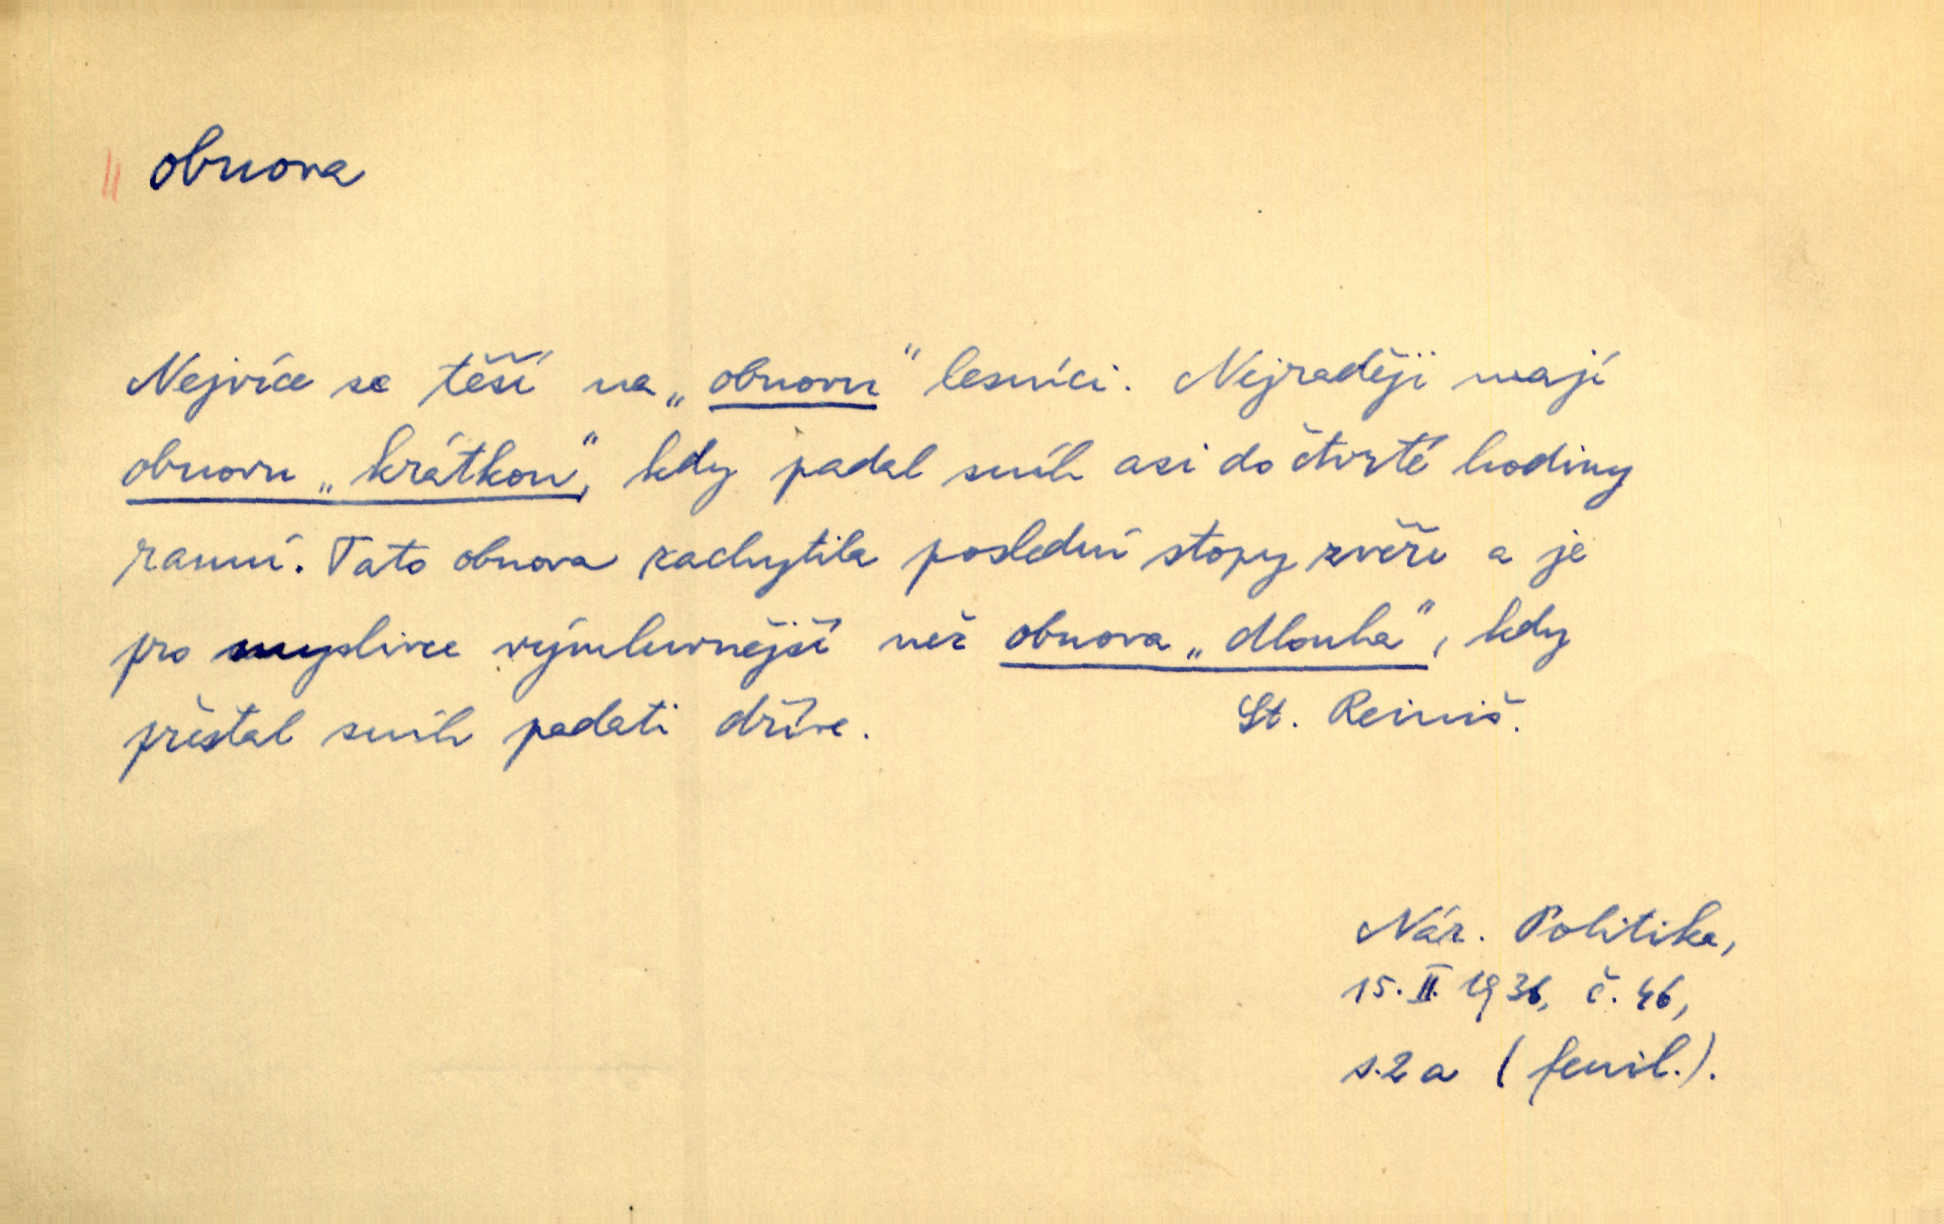 obnova
Nejvíce se těší na „obnovu“ lesníci. Nejraději mají
obnovu „krátkou“, kdy padal sníh asi do čtvrté hodiny
ranní. Tato obnova zachytila poslední stopy zvěře a je
pro myslivce výmluvnější než obnova „dlouhá“, kdy
přestal sníh padati dříve. St. Reiniš.
Nár. Politika,
15. II. 1936, č. 46,
s. 2a (feuil.).